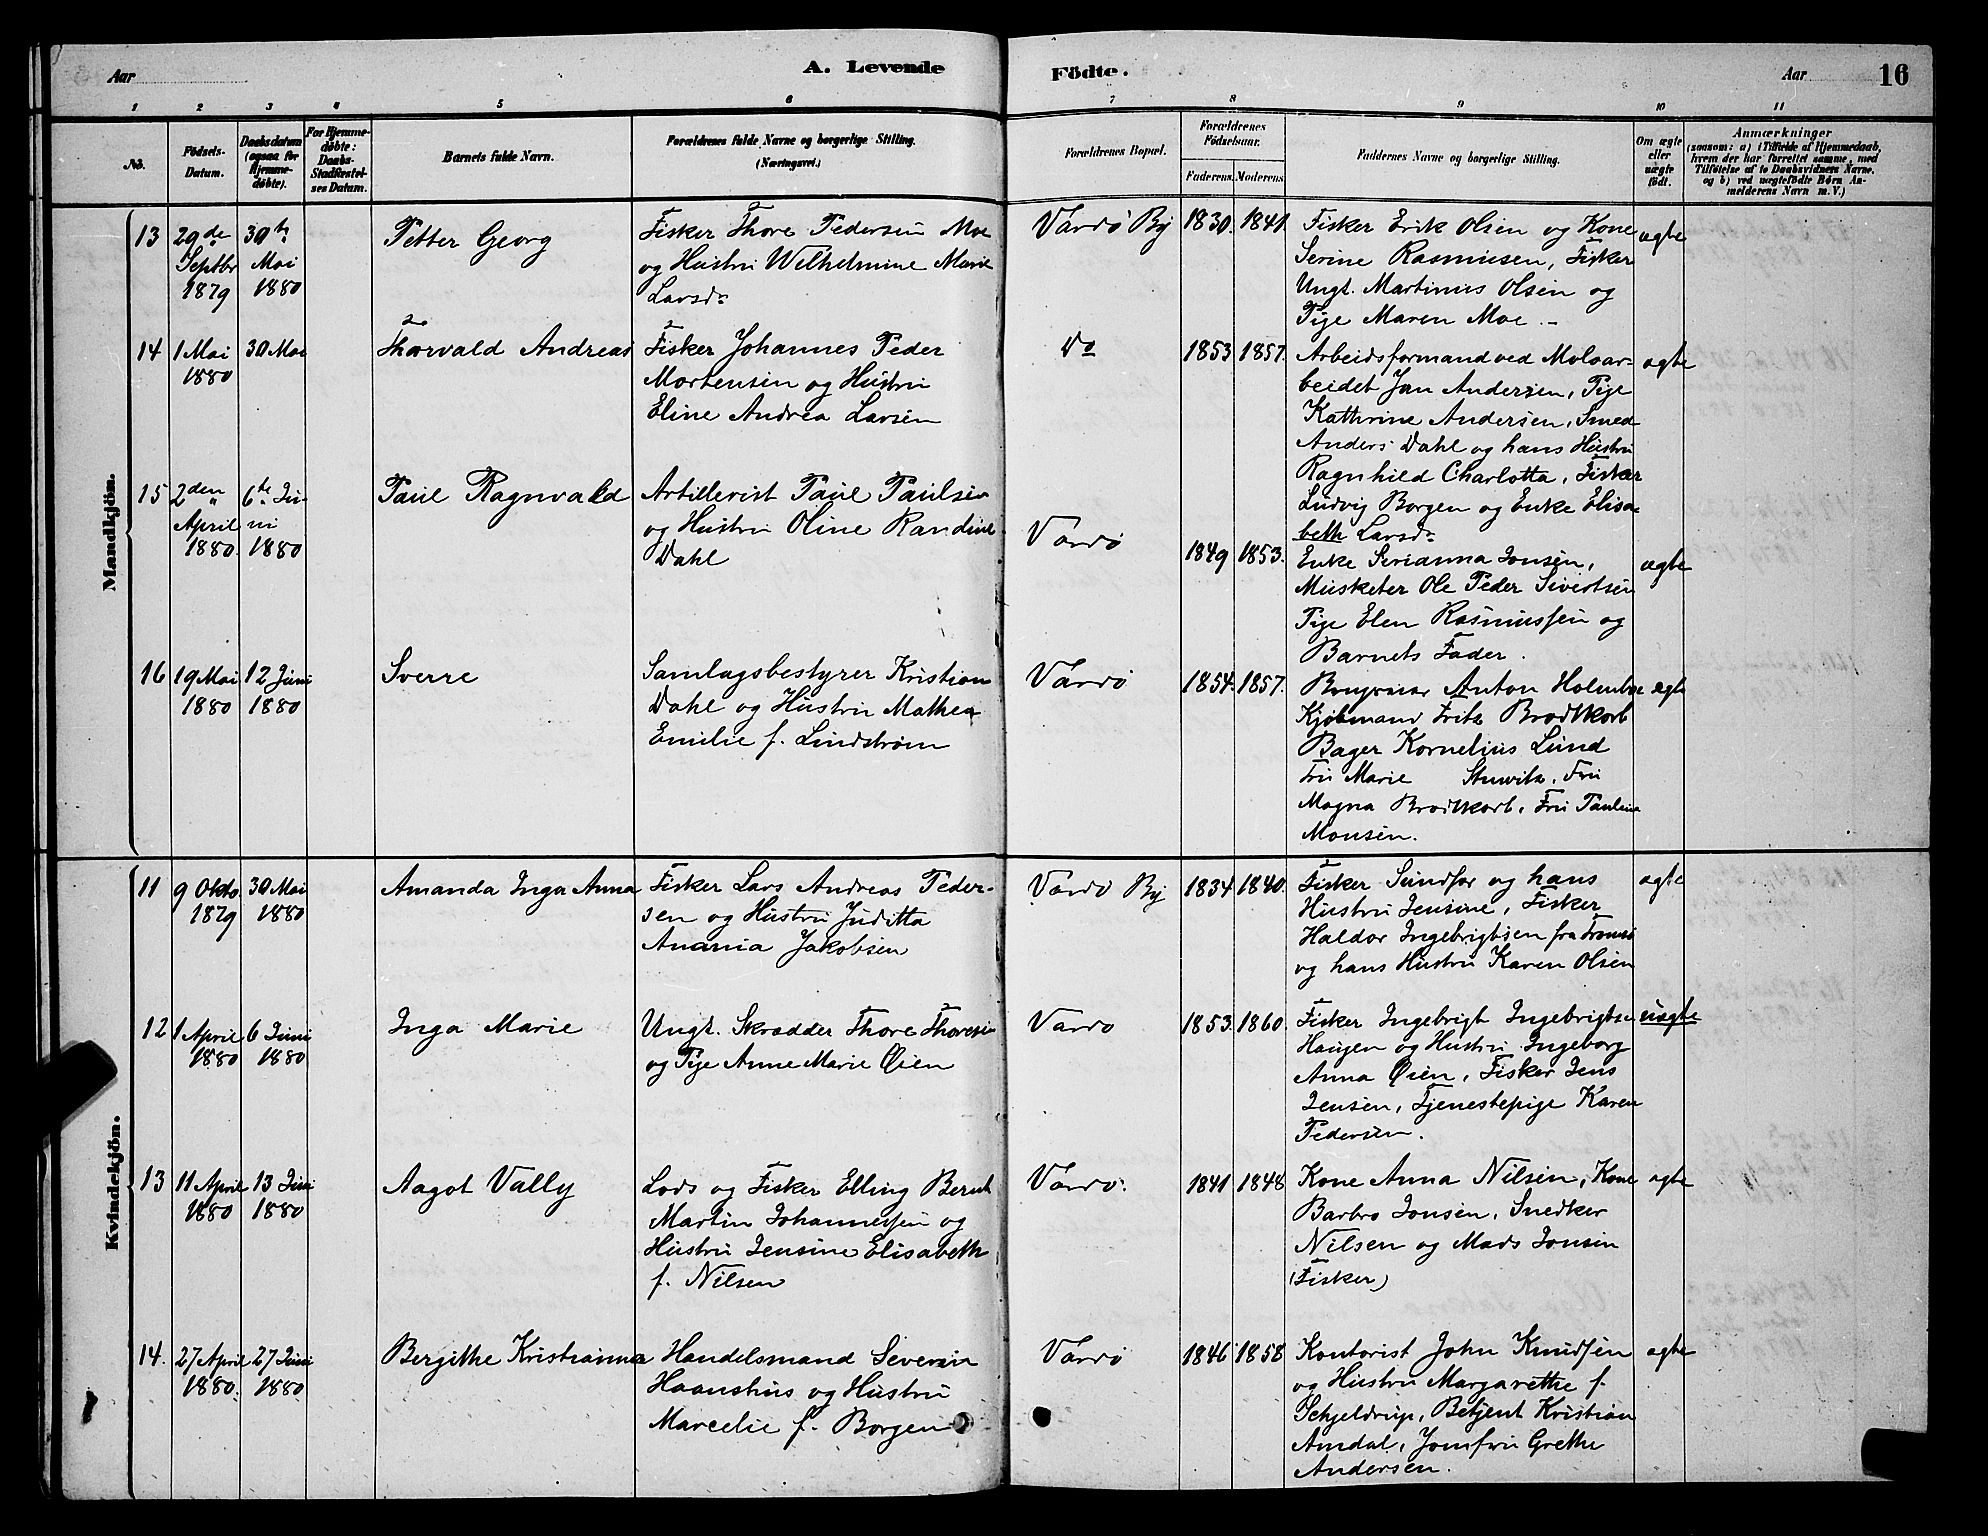 Aar
A. Levende
Födte.
Aar
16
1 2 3 4 5 6 7 8 9 10 11
No.
Födsels-Datum.
Daabsdatum (ogsaa for Hjemme-döbte).
For Hjemme-döbte: Daabs-Stadfæstel-ses Datum.
Barnets fulde Navn.
Forældrenes fulde Navne og borgerlige Stilling. (Næringsvei.)
Forældrenes Bopæl.
Forældrenes Födselsaar.
Faderens. Moderens.
Faddernes Navne og borgerlige Stilling.
Om ægte eller uægte födt.
Anmærkninger
(saasom: a) i Tilfælde af Hjemmedaab, hvem der har forrettet samme, med Tilföielse af to Daabsvidners Navne, og b) ved uægtefödte Börn An-melderens Navn m. V.)
Mandkjön.
13 29de Septbr 1879
30te Mai 1880
Petter Georg
Fisker Thore Pedersen Moe
og Hustru Wilhelmine Marie
Larsd.
Vardö By
1830. 1841.
Fisker Erik Olsen og Kone
Serine Rasmusen, Fisker
Ungk. Martinus Olsen og
Pige Maren Moe.
ægte
14 1 Mai 1880
30 Mai
Thorvald Andreas
Fisker Johannes Peder
Mortensen og Hustru
Eline Andrea Larsen
Do
1853 1857.
Arbeidsformand ved Moloar-
beidet Jan Andersen, Pige
Kathrine Andersen, Smed
Anders Dahl og hans Hustru
Ragnhild Charlotta, Fisker
Ludvig Borgen og Enke Elisa-
beth Larsd.
ægte
15 2den April 1880
6te Juni 1880
Paul Ragnvald
Artillerist Paul Paulsen
og Hustru Oline Randine
Dahl
Vardö
1849 1853.
Enke Serianna Jonsen,
Musketer Ole Peder Sivertsen
Pige Elen Rasmussen og
Barnets Fader.
ægte
16 19 Mai 1880
12 Juni 1880
Sverre
Samlagsbestyrer Kristian
Dahl og Hustru Mathea
Emilie f. Lindstrøm
Vardö
1854. 1857.
Anton Holmboe
Kjøbmand Fritz Brodtkorb
Bager Kornelius Lund
Fru Marie Stuwitz, Fru
Magna Brodtkorb, Fru Pauline
Monsen.
ægte
Kvindekjön.
11 9 Okto. 1879
30 Mai 1880
Amanda Inga Anna
Fisker Lars Andreas Peder-
sen og Hustru Juditta
Anania Jakobsen
Vardö By
1834 1840.
Fisker Sundfør og hans
Hustru Jensine, Fisker
Haldor Ingebrigtsen fra Tromsö
og hans Hustru Karen Olsen
ægte
12 1 April 1880
6 Juni 1880
Inga Marie
Ungk. Skrædder Thore Thoresen
og Pige Anne Marie Øien
Vardö
1853. 1860.
Fisker Ingebrigt Ingebrigtsen
Haugen og Hustru Ingeborg
Anna Øien, Fisker Jens
Jensen, Tjenestepige Karen
Pedersen.
uægte
13 11 April 1880
13 Juni 1880
Aagot Vally
Lods og Fisker Elling Bernt
Martin Johannessen og
Hustru Jensine Elisabeth
f. Nilsen
Vardö.
1841 1848
Kone Anna Nilsen, Kone
Barbro Jonsen, Snedker
Nilsen og Mads Jonsen
(Fisker)
ægte
14. 27 April 1880.
27 Juni 1880
Bergithe Kristianna
Handelsmand Severin
Haanshus og Hustru
Marcelie f. Borgen
Vardö
1846 1858
Kontorist John Knudsen
og Hustru Margarethe f.
Schjeldrup, Betjent Kristian
Amdal, Jomfru Grethe
Andersen.
ægte